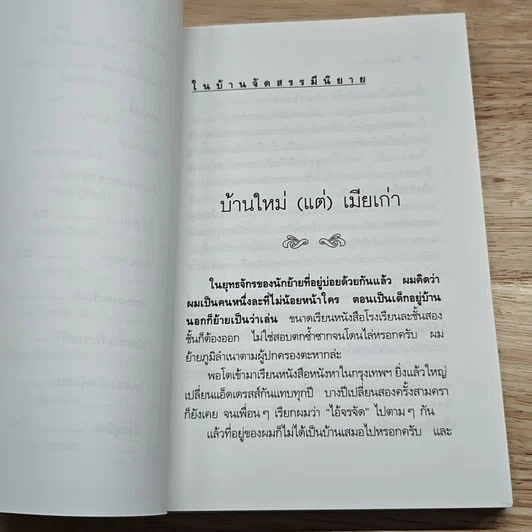 ในบ้านจัดสรรมีนิยาย
บ้านใหม่ (แต่) เมียเก่า
ในยุทธจักรของนักย้ายที่อยู่บ่อยด้วยกันแล้ว ผมคิดว่า
ผมเป็นคนหนึ่งละที่ไม่น้อยหน้าใคร ตอนเป็นเด็กอยู่บ้าน
นอกก็ย้ายเป็นว่าเล่น ขนาดเรียนหนังสือโรงเรียนละชั้นสอง
ชั้นก็ต้องออก ไม่ใช่สอบตกซ้ำซากจนโดนไล่หรอกครับ ผม
ย้ายภูมิลำเนาตามผู้ปกครองตะหากล่ะ
พอโตเข้ามาเรียนหนังสือหนังหาในกรุงเทพฯ ยิ่งแล้วใหญ่
เปลี่ยนแอ็ดเดรสส์กันแทบทุกปี บางปีเปลี่ยนสองครั้งสามครา
ก็ยังเคย จนเพื่อนๆ เรียกผมว่า “ไอ้จรจัด” ไปตามๆ กัน
แล้วที่อยู่ของผมก็ไม่ได้เป็นบ้านเสมอไปหรอกครับ และ